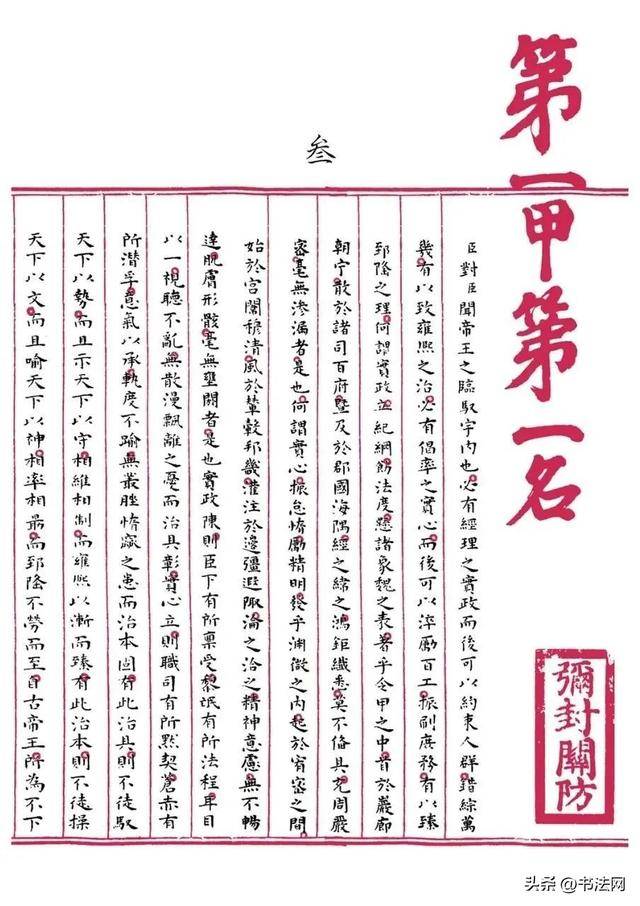 第一甲第一名
彌封關防
叁
臣對臣聞帝王之臨馭宇內也必有經理之實政而後可以約束人群錯綜萬
幾有以致雍熙之治必有倡率之實心而後可以淬勵百工振刷庶務有以臻
郅隆之理何謂實政立紀綱飭法度懸諸象魏之表著乎令甲之中首於巖廊
朝宁散於諸司百府暨及於郡國海隅經之緯之鴻鉅纖悉莫不備具充周嚴
密毫無滲漏者是也何謂實心振怠惰勵精明發乎淵微之內起於宥密之間
始於宮闈穆清風於輦轂邦畿灌注於邊疆遐陬淪之洽之精神意慮無不暢
達肌膚形骸毫無壅閼者是也實政陳則臣下有所稟受黎氓有所法程耳目
以一視聽不亂無散漫飄離之憂而治具彰實心立則職司有所默契蒼赤有
所潛孚意氣以承軌度不踰無叢脞惰窳之患而治本固有此治具則不徒馭
天下以勢而且示天下以守相維相制而雍熙以漸而臻有此治本則不徒操
天下以文而且喻天下以神相率相最而郅隆不勞而至自古帝王所為不下
头条 @书法网